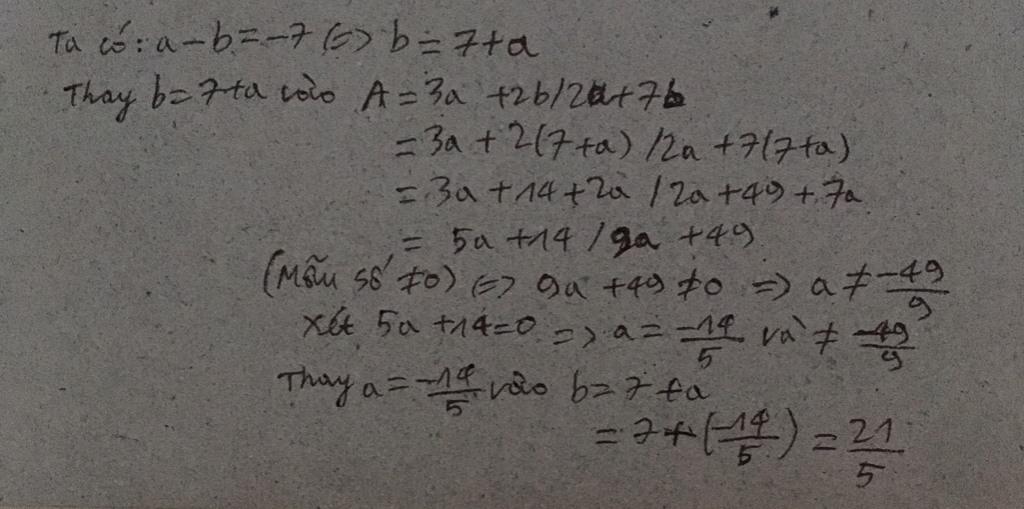 Ta có: a - b = -7 <=> b = 7+a
Thay b = 7+a vào A = 3a + 2b / 2a + 7b
= 3a + 2(7+a) / 2a + 7(7+a)
= 3a + 14 + 2a / 2a + 49 + 7a
= 5a + 14 / 9a + 49
(Mẫu số ≠ 0) <=> 9a + 49 ≠ 0 => a ≠ -49/9
Xét 5a + 14 = 0 => a = -14/5 và ≠ -49/9
Thay a = -14/5 vào b = 7 + a
= 7 + (-14/5) = 21/5